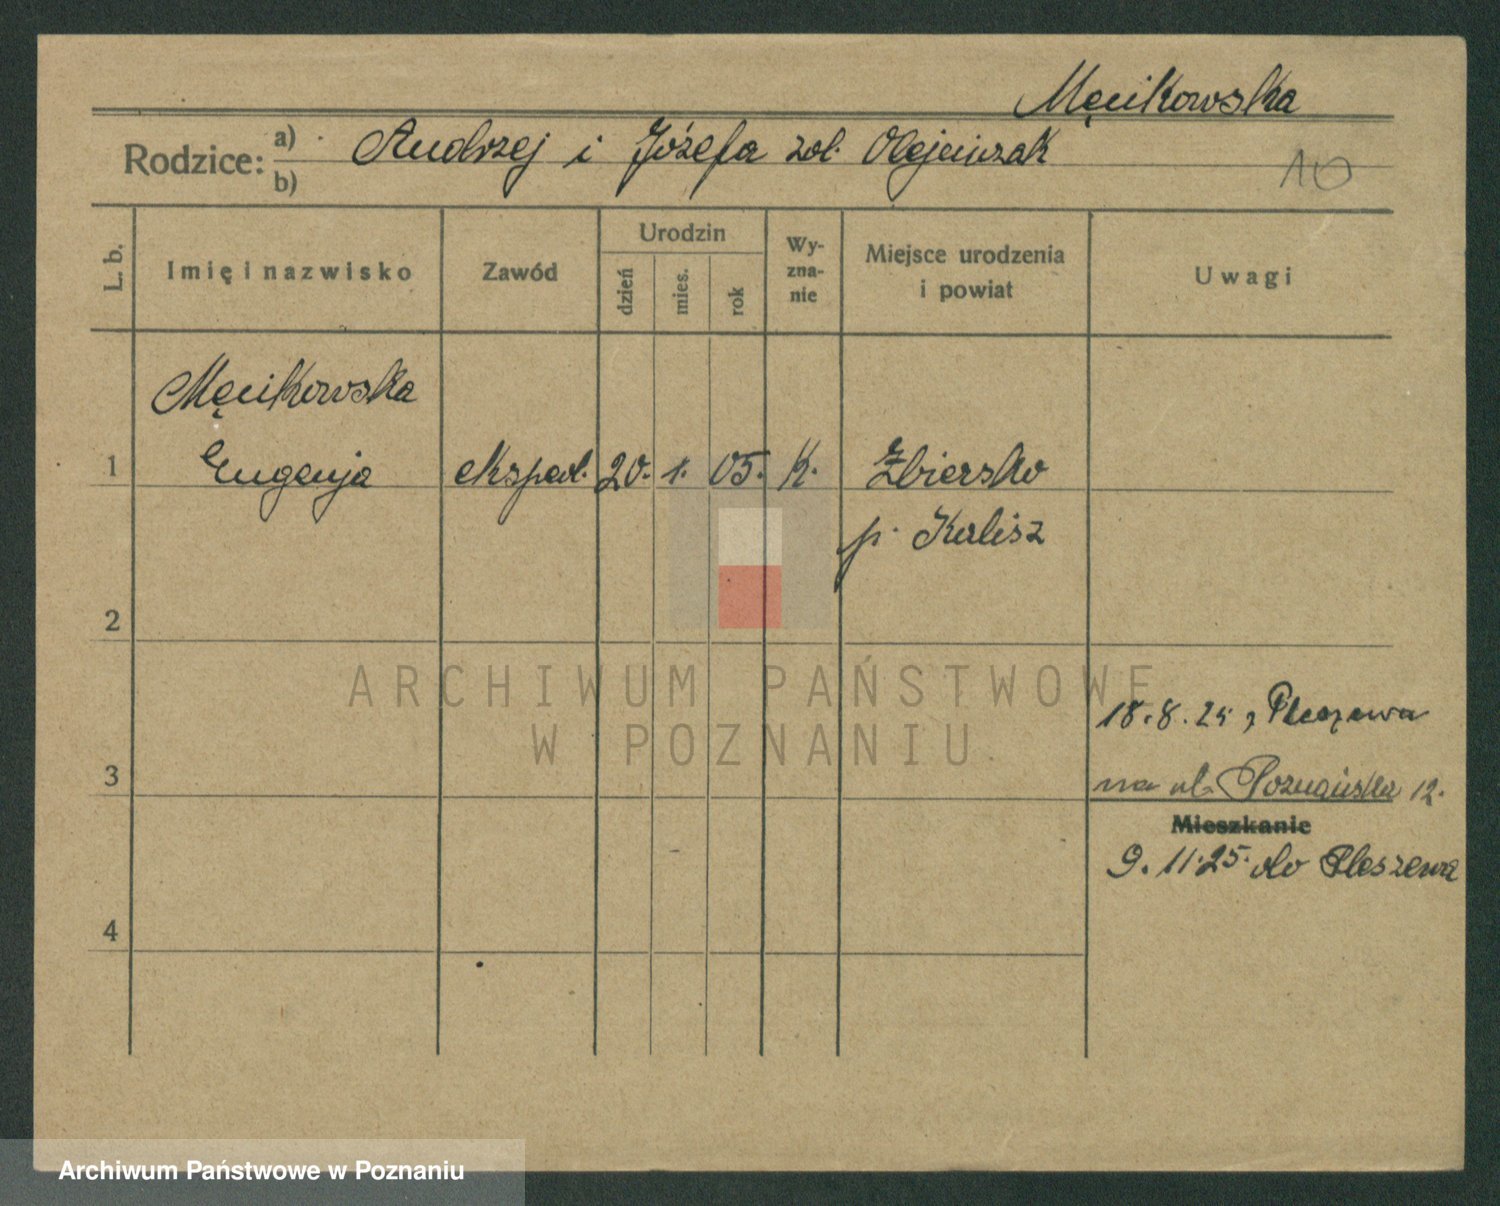 Męcikowska
Rodzice: a) Andrzej i Józefa zol. Olejniczak
b)
10
L. b. Imię i nazwisko Zawód Urodzin dzień mies. rok Wy-zna-nie Miejsce urodzenia i powiat Uwagi
Męcikowska
1 Eugenja eksped. 20. 1. 05. K. Zbiersko
p. Kalisz
2
18.8.25 z Pleszewa
3 na ul. Poznańska 12.
Mieszkanie
9.11.25. do Pleszewa
4
ARCHIWUM PAŃSTWOWE
W POZNANIU
Archiwum Państwowe w Poznaniu